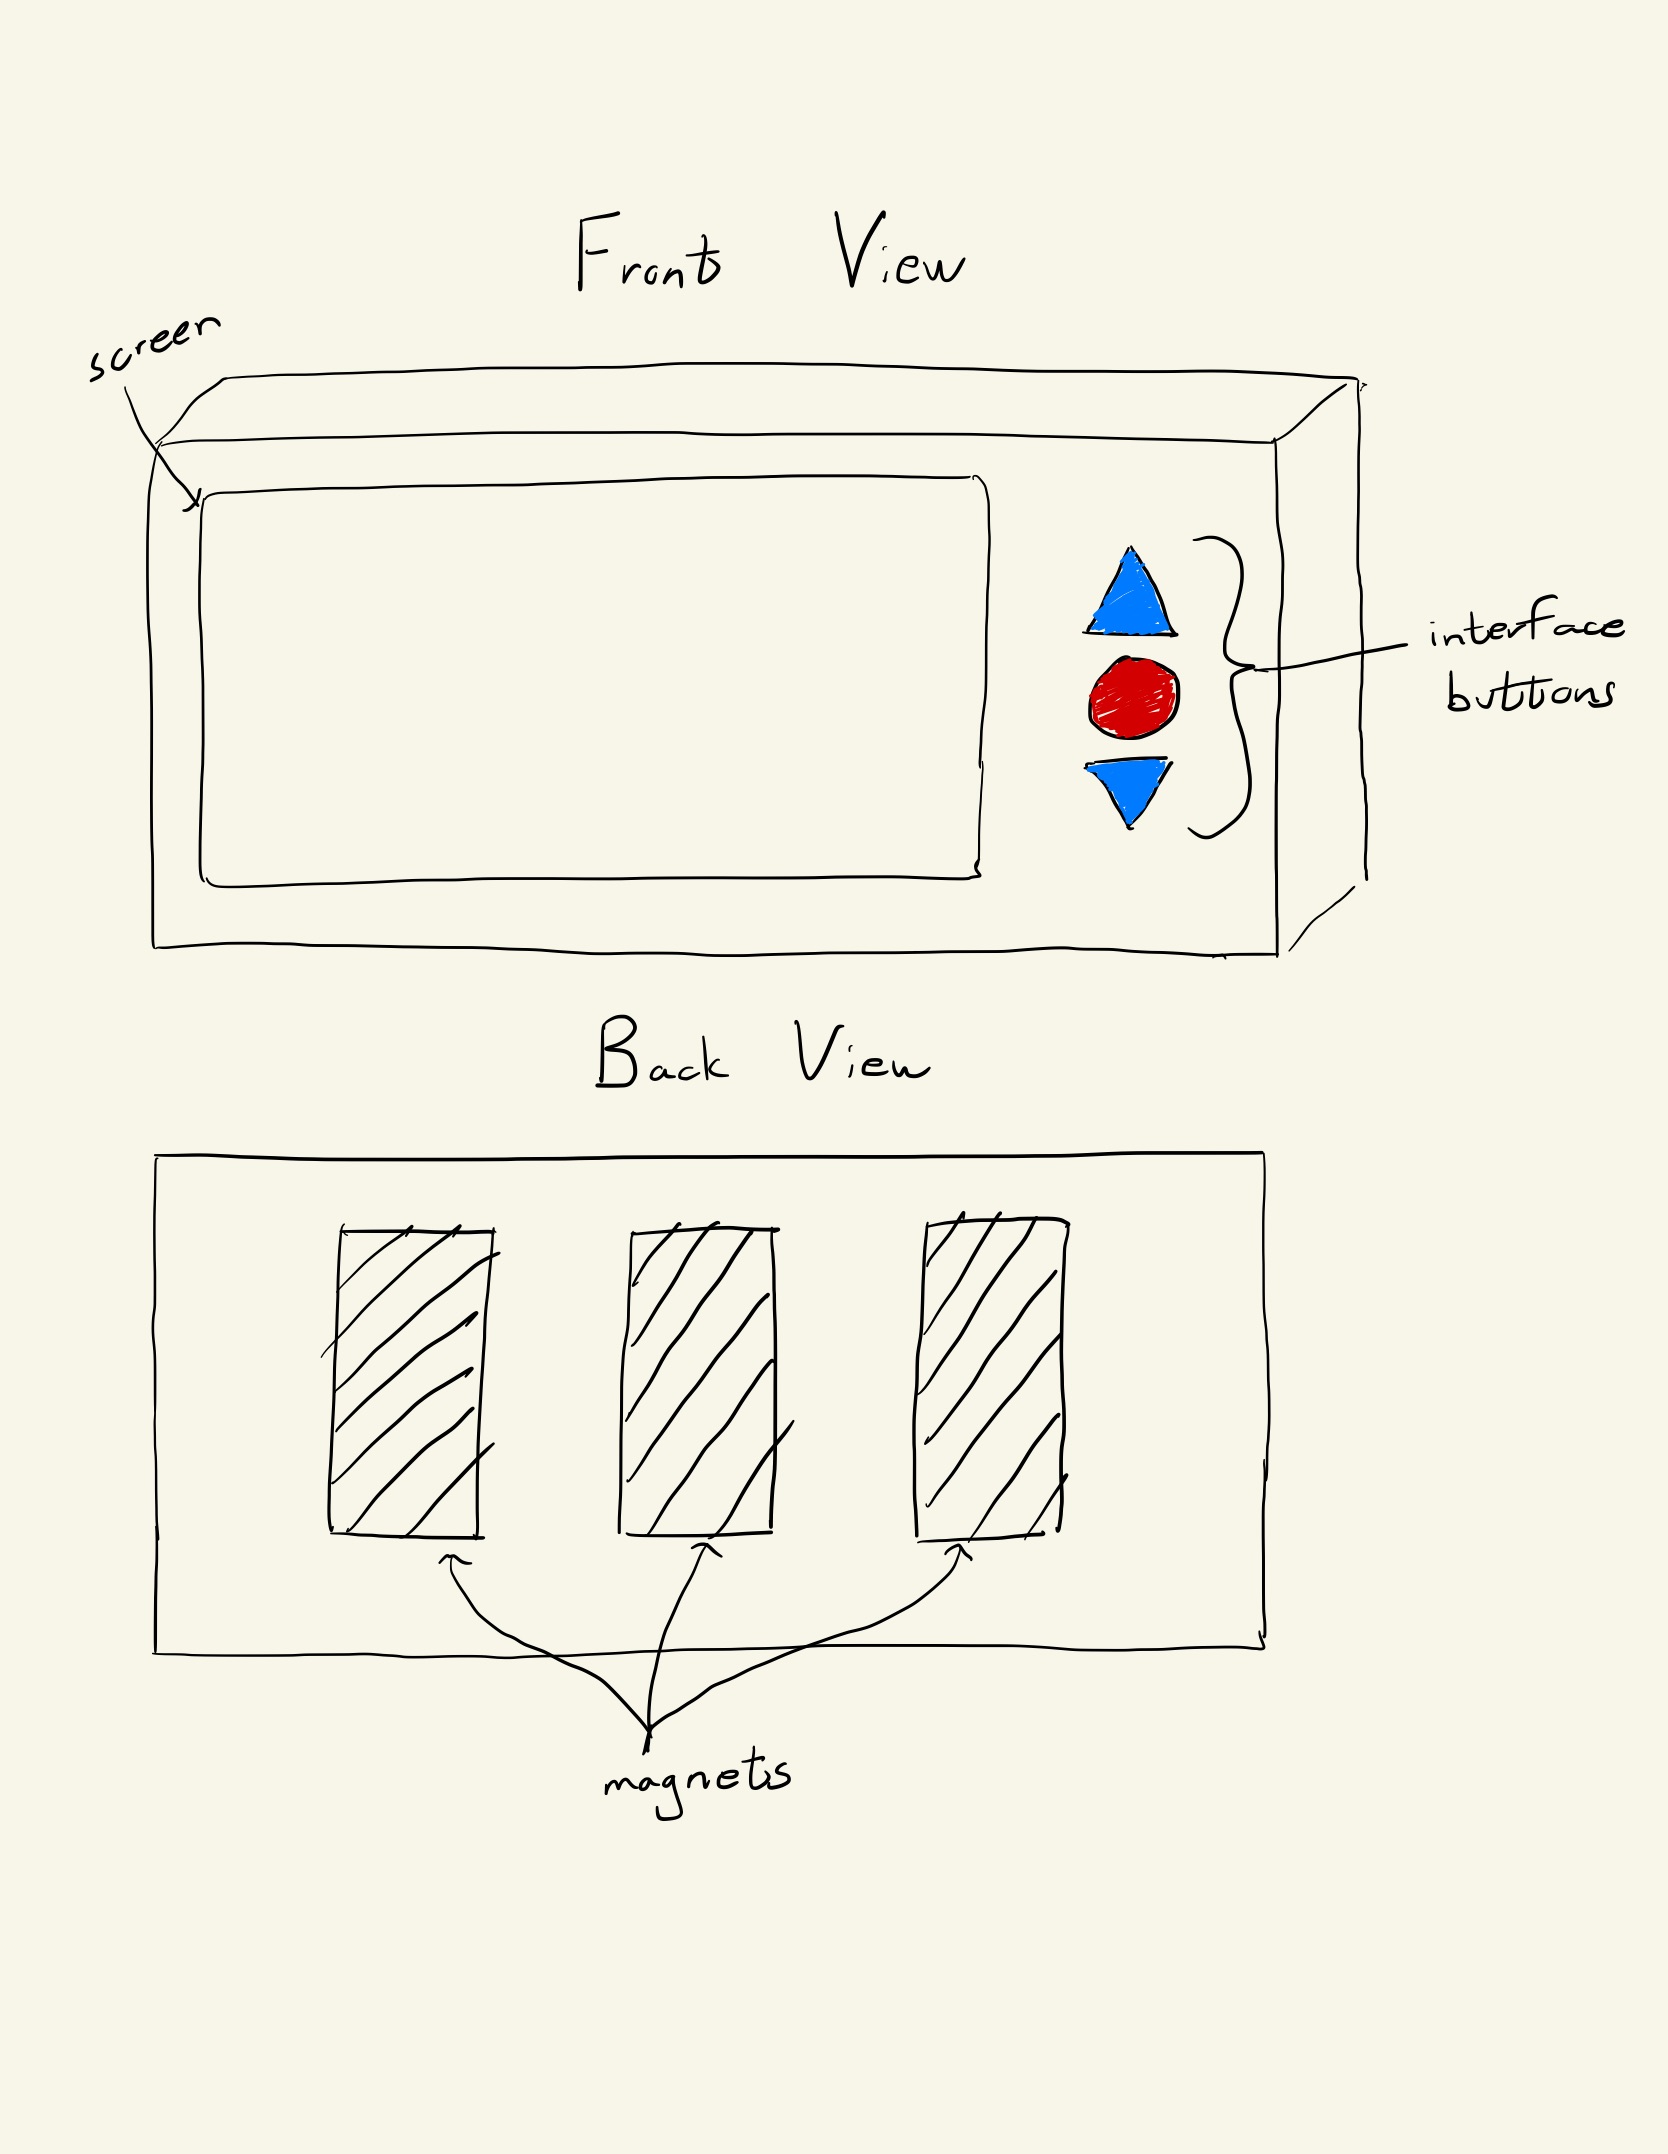 Front View
screen
interface
buttons
Back View
magnets